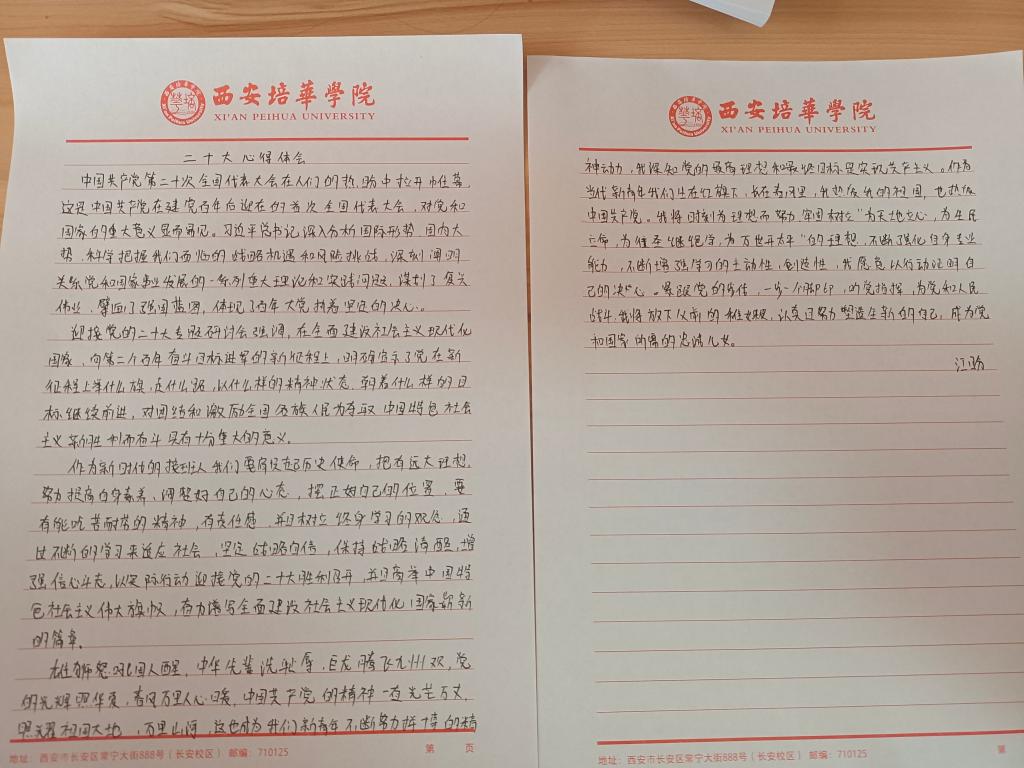 西安培華學院
XI'AN PEIHUA UNIVERSITY
二十大心得体会
中国共产党第二十次全国代表大会在人们的热盼中拉开帷幕,
这是中国共产党在建党百年后迎在的首次全国代表大会,对党和
国家的重大意义显而易见。习近平总书记深入分析国际形势、国内大
势,科学把握我们面临的战略机遇和风险挑战,深刻阐明
关系党和国家事业发展的一系列重大理论和实践问题,谋划了复兴
伟业、擘画了强国蓝图,体现了百年大党执着坚定的决心。
迎接党的二十大专题研讨会强调,在全面建设社会主义现代化
国家、向第二个百年奋斗目标进军的新征程上,明确宣示了党在新
征程上举什么旗,走什么路,以什么样的精神状态,朝着什么样的目
标继续前进,对团结和激励全国各族人民为夺取中国特色社会
主义新胜利而奋斗具有十分重大的意义。
作为新时代的接班人我们要肩负起历史使命,把有远大理想,
努力提高自身素养、调整好自己的心态,摆正好自己的位置,要
有能吃苦耐劳的精神,有责任感,并且树立终身学习的观念,通
过不断的学习来适应社会,坚定战略自信,保持战略清醒,增
强信心斗志,以实际行动迎接党的二十大胜利召开,并且高举中国特
色社会主义伟大旗帜,奋力谱写全面建设社会主义现代化国家崭新
的篇章。
雄狮怒吼国人醒,中华先辈洗耻辱,巨龙腾飞九州欢,党
的光辉照华夏,春风万里人心暖,中国共产党的精神一夜光芒万丈,
照耀祖国大地,万里山河,这也成为我们新青年不断努力拼搏的精
地址:西安市长安区常宁大街888号(长安校区) 邮编:710125
第 页
西安培華學院
XI'AN PEIHUA UNIVERSITY
神动力,我深知党的最高理想和最终目标是实现共产主义。作为
当代新青年我们生在红旗下,长在春风里,我热爱我的祖国,也热爱
中国共产党。我将时刻为理想而努力,牢固树立"为天地立心,为生民
立命,为往圣继绝学,为万世开太平"的理想,不断强化自身专业
能力,不断增强学习的主动性,创造性,我愿意以行动证明自
己的决心。紧跟党的步伐,一步一个脚印,听党指挥,为党和人民
战斗,我将放下以前的,认真且努力塑造全新的自己,成为党
和国家所需的忠诚儿女。
地址:西安市长安区常宁大街888号(长安校区) 邮编:710125
第